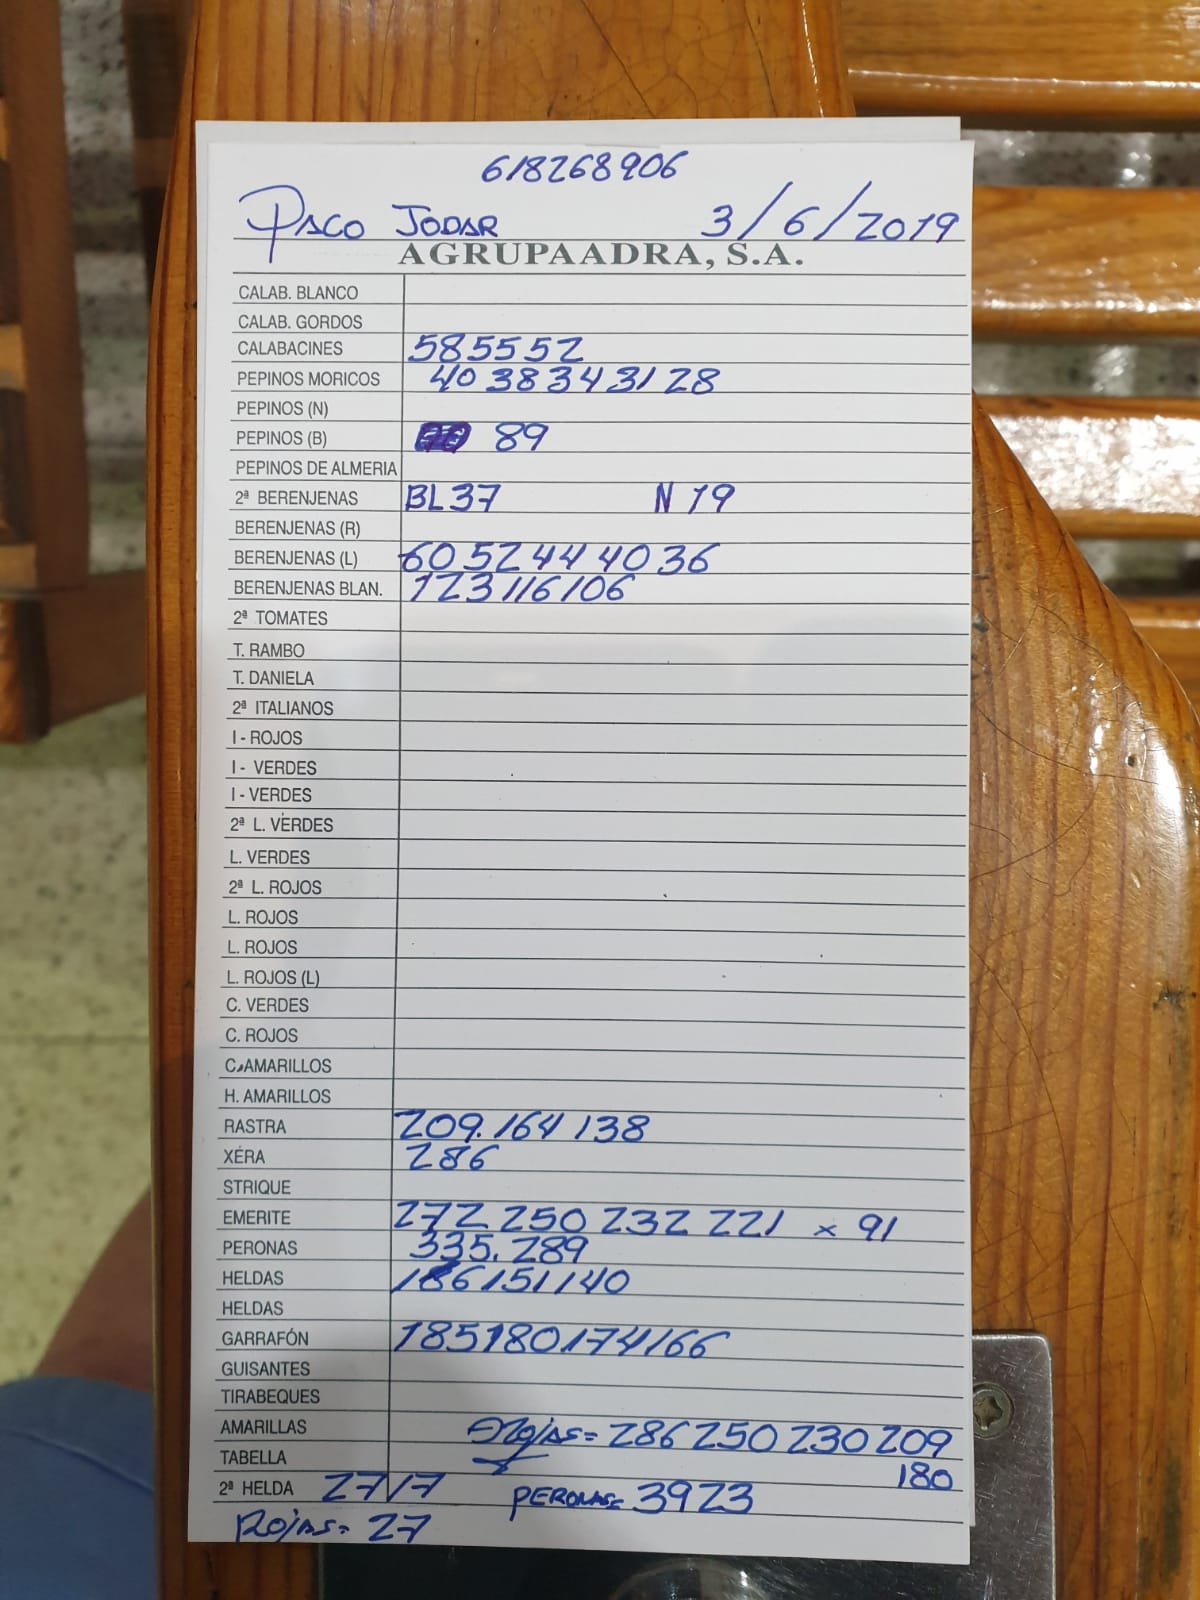 618268906
PACO JODAR 3/6/2019
AGRUPAADRA, S.A.
CALAB. BLANCO
CALAB. GORDOS
CALABACINES 58 55 52
PEPINOS MORICOS 40 38 34 31 28
PEPINOS (N)
PEPINOS (B) 89
PEPINOS DE ALMERIA
2ª BERENJENAS BL 37 N 19
BERENJENAS (R)
BERENJENAS (L) 60 52 44 40 36
BERENJENAS BLAN. 123 116 106
2ª TOMATES
T. RAMBO
T. DANIELA
2ª ITALIANOS
I - ROJOS
I - VERDES
I - VERDES
2ª L. VERDES
L. VERDES
2ª L. ROJOS
L. ROJOS
L. ROJOS
L. ROJOS (L)
C. VERDES
C. ROJOS
C. AMARILLOS
H. AMARILLOS
RASTRA 209. 164 138
XÉRA 286
STRIQUE
EMERITE 272 250 232 221 x 91
PERONAS 335. 289
HELDAS 186 151 140
HELDAS
GARRAFÓN 185 180 174 166
GUISANTES
TIRABEQUES
AMARILLAS Rojas = 286 250 230 209
TABELLA 180
2ª HELDA 27 17 PERONAS = 39 23
Rojas = 27